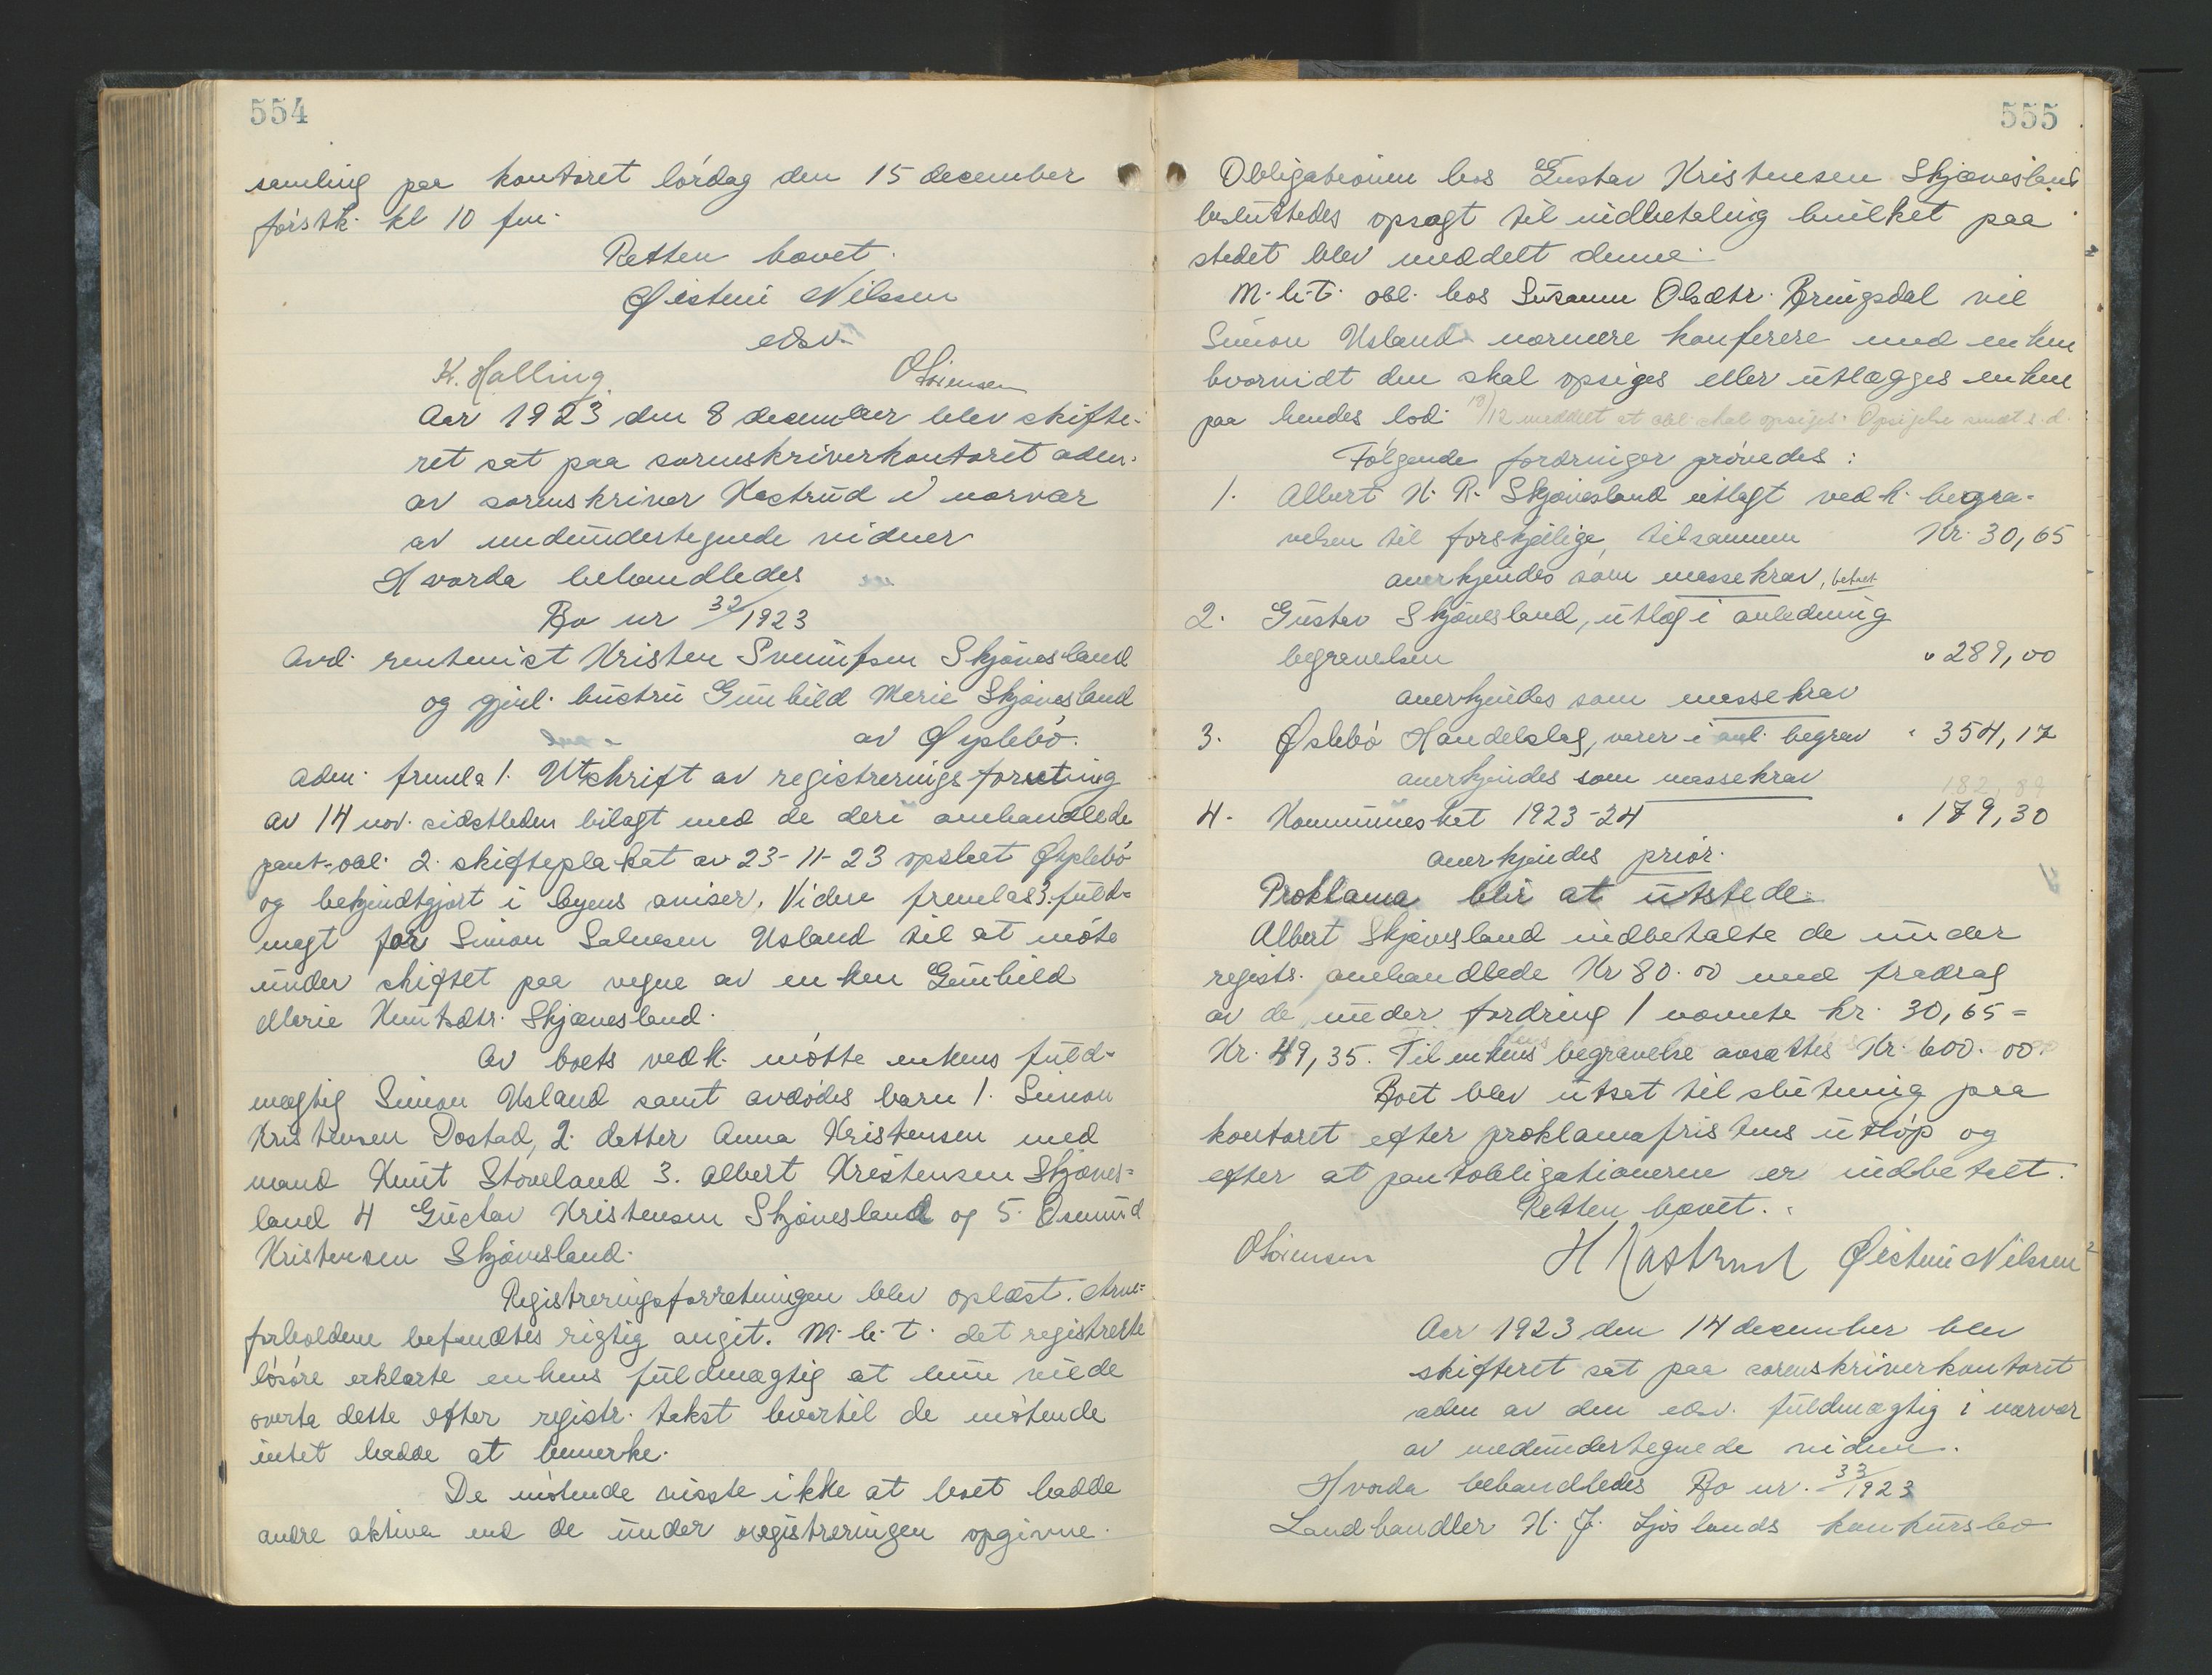 554
samling paa kontoret lørdag den 15 december
førstk. kl 10 fm.
Retten hævet.
Øistein Nilssen
edsv.
K. Halling OSörensen
Aar 1923 den 8 december blev skifte-
ret sat paa sorenskriverkontoret adm.
av sorenskriver Kastrud i nærvær
av medundertegnede vidner
Hvorda behandledes
Bo nr 32/1923
Avd. rentenist Kristen Sveinufsen Skjævesland
og gjenl. hustru Gunhild Marie Skjævesland
av Øyslebø.
Adm. fremla 1. Utskrift av registreringsforretning
av 14 nov. sidstleden bilagt med de deri omhandlede
pant-obl. 2. skifteplakat av 23-11-23 opslaat Øyslebø
og bekjendtgjort i byens aviser. Videre fremlas 3. fuld-
magt for Simon Salvesen Usland til at møte
under skiftet paa vegne av enken Gunhild
Marie Knutsdtr. Skjævesland.
Av boets vedk. møtte enkens fuld-
mægtig Simon Usland samt avdødes barn 1. Simon
Kristensen Dostad, 2. datter Anna Kristensen med
mand Knut Støveland 3. Albert Kristensen Skjæves-
land 4 Gustav Kristensen Skjævesland og 5. Osmund
Kristensen Skjævesland.
Registreringsforretningen blev oplæst. Arve-
forholdene befandtes rigtig angit. M.h.t. det registrerte
løsøre erklærte enkens fuldmægtig at hun vilde
overta dette efter registr. takst hvortil de møtende
intet hadde at bemerke.
De møtende visste ikke at boet hadde
andre aktiva end de under registreringen opgivne.
555
Obligationen hos Gustav Kristensen Skjævesland
besluttedes opsagt til indbetaling hvilket paa
stedet blev meddelt denne.
M.h.t. obl. hos Susanne Olsdtr. Bringsdal vil
Simon Usland nærmere konferere med enken
hvorvidt den skal opsiges eller utlægges enken
paa hendes lod. 18/12 meddelt at obl. skal opsiges. Opsigelse sendt s.d.
Følgende fordringer prøvedes:
1. Albert K. R. Skjævesland utlagt ved k. begra-
velsen til forskjellige, tilsammen Kr. 30,65
anerkjendes som massekrav, betalt
2. Gustav Skjævesland, utlæg i anledning
begravelsen " 289,00
anerkjendes som massekrav
3. Øslebø Handelslag, varer i anl. begrav " 354,17
anerkjendes som massekrav
182,89
4. Kommuneskat 1923-24 " 179,30
anerkjendes prior.
Proklama blir at utstede.
Albert Skjævesland indbetalte de under
registr. omhandlede Kr 80.00 med fradrag
av de under fordring 1 nævnte kr. 30,65 =
Kr. 49,35. Til enkens begravelse avsættes Kr. 600.00.
Boet blev utsat til slutning paa
kontoret efter proklamafristens utløp og
efter at pantobligationerne er indbetalt.
Retten hævet.
OSörensen H Kastrud Øistein Nilssen
Aar 1923 den 14 december blev
skifteret sat paa sorenskriverkontoret
adm av den edsv. fuldmægtig i nærvær
av medundertegnede vidner.
Hvorda behandledes Bo nr. 33/1923
Landhandler K. J. Ljoslands konkursbo